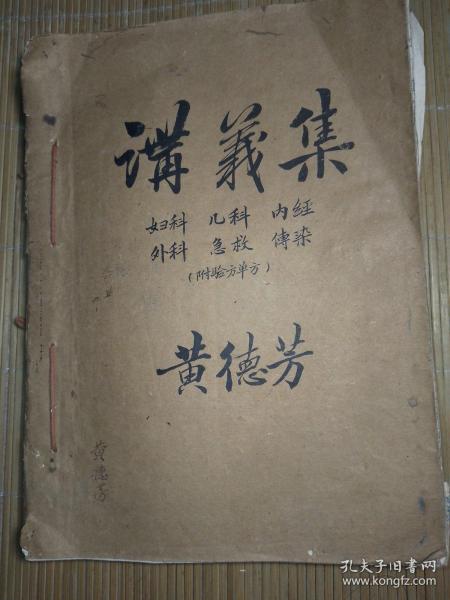 講義集
妇科 儿科 内經
外科 急救 傳染
(附验方单方)
黄德芳
黄德芳
孔夫子旧书网
www.kongfz.com